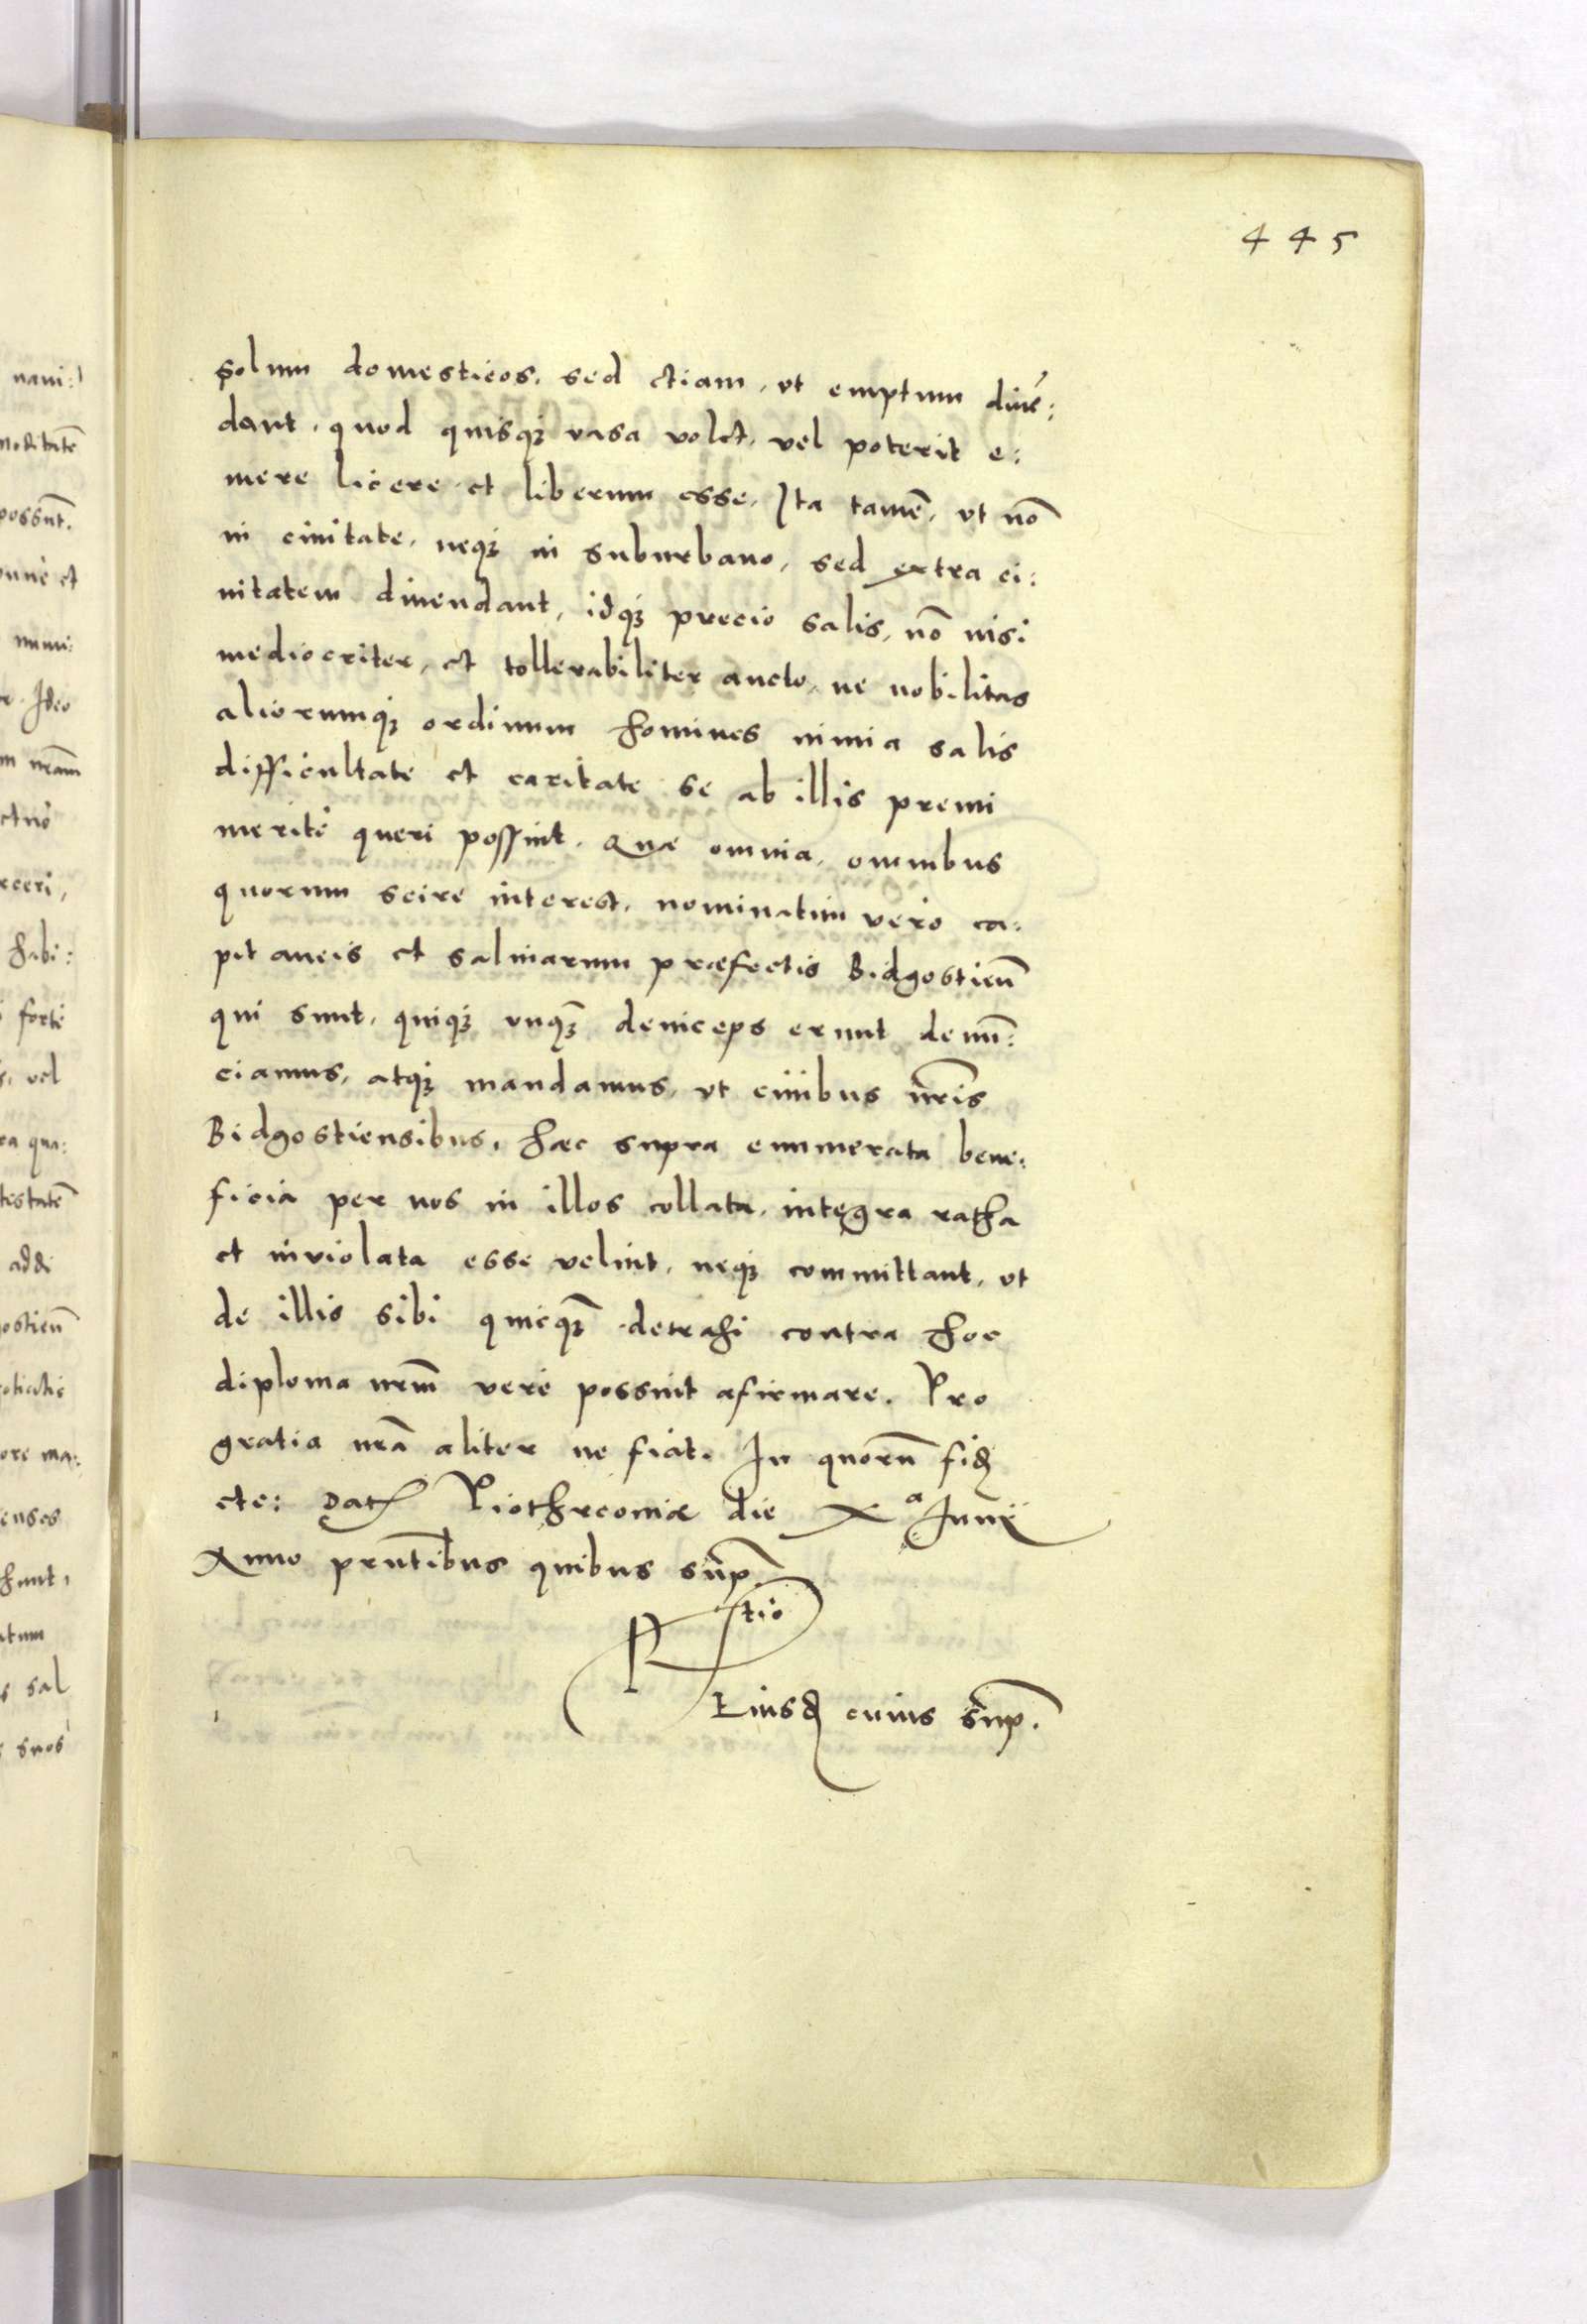 445
solum domesticos, sed etiam, ut emptum divē:
dant, quod quisqꝫ vasa volet, vel poterit e:
mere licere et liberum esse. Ita tamē, ut nō
in civitate, neqꝫ in suburbano, sed extra ci:
vitatem divendant, idqꝫ precio salis, nō nisi
mediocriter, et tollerabiliter aucto, ne nobilitas
aliorumqꝫ ordinum homines nimia salis
difficultate et caritate se ab illis premi
merito queri possint. Quæ omnia, omnibus
quorum scire interest, nominatim vero ca:
pitaneis et salinarum præfectis Bidgostieñ
qui sunt, quiqꝫ unqꝫ deinceps erunt denū:
ciamus, atqꝫ mandamus, ut civibus nr̄is
Bidgostiensibus, hæc supra enumerata bene:
ficia per nos in illos collata, integra ratha
et inviolata esse velint, neqꝫ committant, ut
de illis sibi quicqꝫ detrahi contra hoc
diploma nr̄m vere possint afirmare. Pro
gratia nr̄a aliter ne fiat. In quorū fidē
etc: Dat Piothrconiæ die Xᵃ Junij
Anno prn̄tibus quibus sup.
Rtio
Eiusdē cuius sup.
navi:
moditatē
possunt.
nuni:
Ideo
nr̄am
rceri,
habi:
forte
vel
ra qua:
testatē
addi
ostieñ
ore ma:
enses
hunt,
atum
s sal
suos